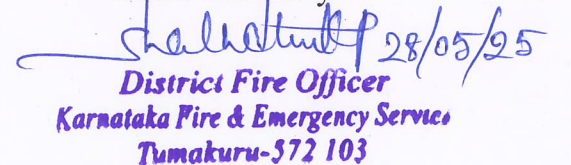 28/05/25
District Fire Officer
Karnataka Fire & Emergency Service
Tumakuru-572 103